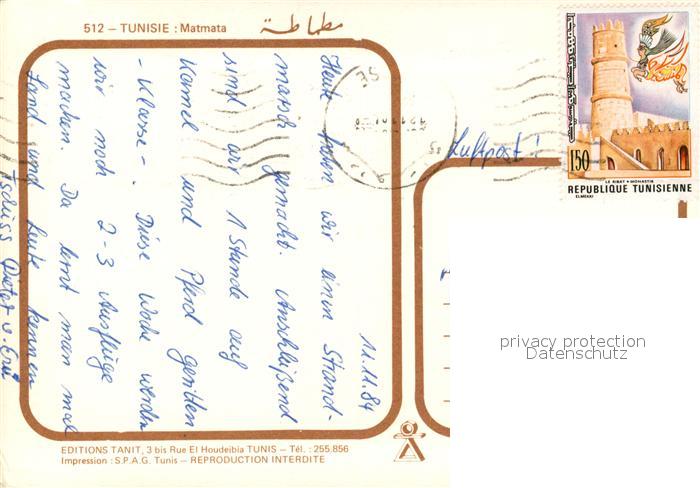 512 – TUNISIE : Matmata مطماطة
11.11.84
Heute haben wir einen Strand-
marsch gemacht. Anschließend
sind wir 1 Stunde auf
Kamel und Pferd geritten
- Klasse -. Diese Woche werden
wir noch 2-3 Ausflüge
machen. Da lernt man mal
Land und Leute kennen
Tschüss Dieter u.
Luftpost!
150
LE RIBAT • MONASTIR
REPUBLIQUE TUNISIENNE
ELMEKKI
privacy protection
Datenschutz
EDITIONS TANIT, 3 bis Rue El Houdeibia TUNIS – Tél. : 255.856
Impression : S.P.A.G. Tunis – REPRODUCTION INTERDITE